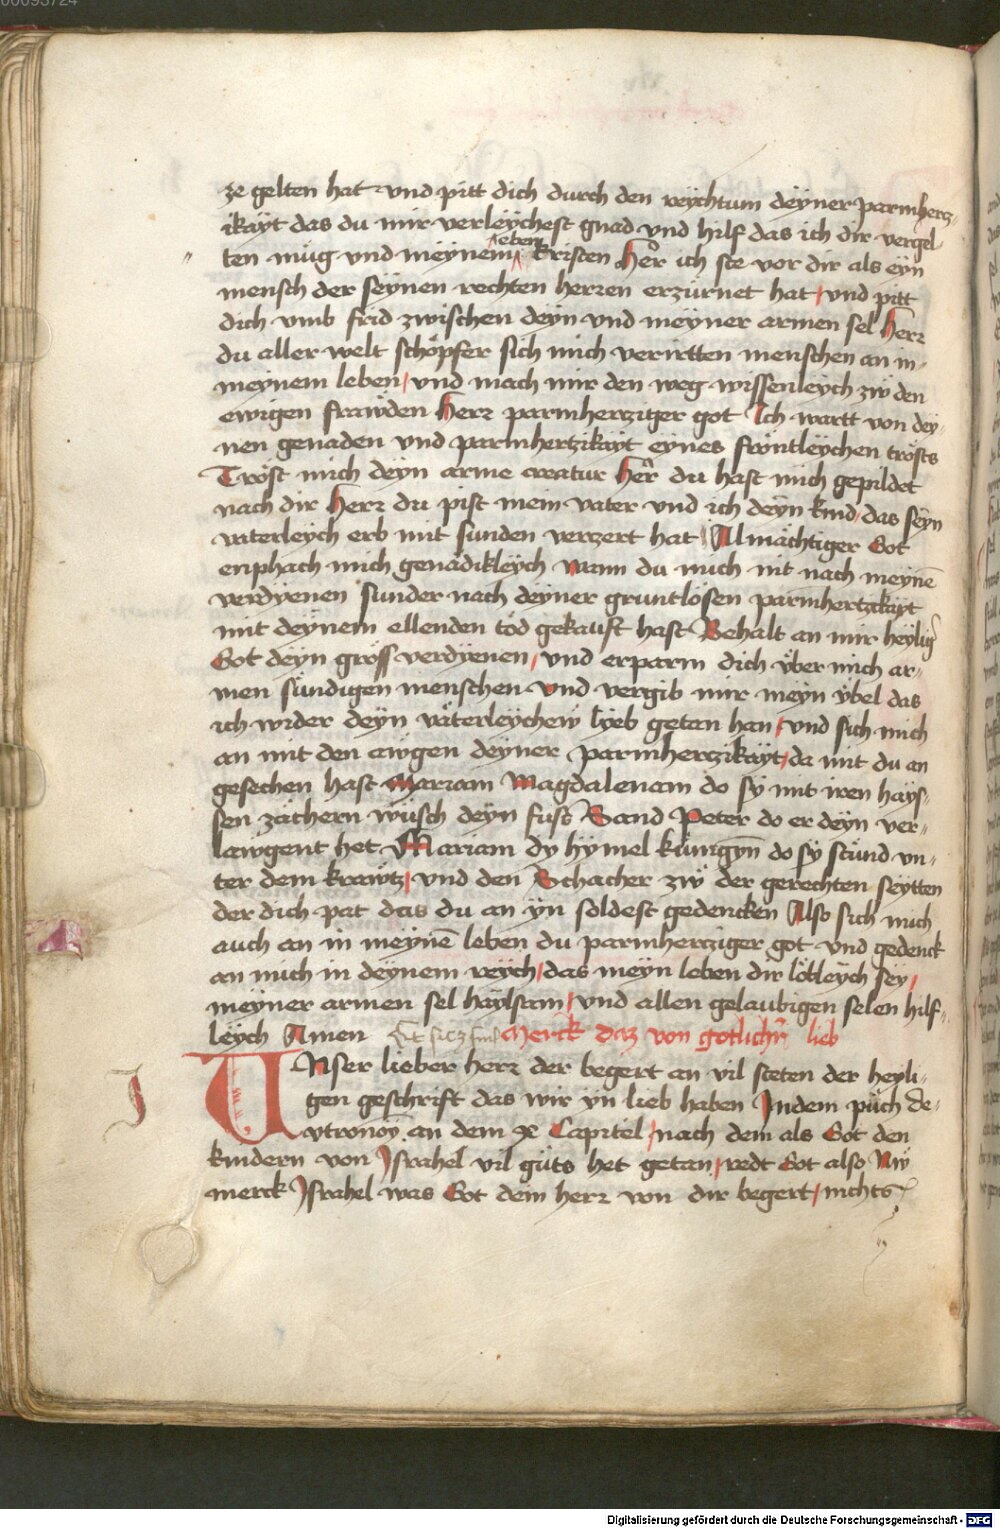 00093724
ze gelten hat vnd pitt dich durch den reychtum deyner parmhercz
ikäyt das du mir verleychest gnad vnd hilf das ich dir vergel
ten müg vnd meynem eben kristen Her ich ste vor dir als eyn
mensch der seynen rechten herren erzürnet hat / vnd pitt
dich vmb frid zwischen deyn vnd meyner armen sel Herr
du aller welt schöpfer sich mich verirtten menschen an in
meynem leben / vnd mach mir den weg wissenleych zw den
ewigen frawden Herr parmhercziger got Ich wartt von dey
nen genaden vnd parmhertzikäyt eynes fröntleychen trösts
Tröst mich deyn arme creatur Her du hast mich gepildet
nach dir Herr du pist mein vater vnd ich deyn kind / das seyn
vaterleych erb mit sünden verzert hat Almächtiger Got
enphach mich genädikleych wann du mich nit nach meynē
verdyenen sunder nach deyner gruntlösen parmhertzikäyt
mit deynem ellenden töd gekauft hast Behalt an mir heylig
Got deyn gröss verdyenen / vnd erparm dich über mich ar-
men sündigen menschen vnd vergib mir meyn übel das
ich wider deyn väterleychew lyeb getan han / vnd sich mich
an mit den awgen deyner parmherczikäyt / da mit du an
gesechen hast Mariam Magdalenam do sy mit iren häys-
sen zächern wusch deyn fuss Sand Peter do er deyn ver-
lawgent het Mariam dy hymel künigyn do sy stund vn-
ter dem krawtz / vnd den Schacher zw der gerechten seytten
der dich pat das du an yn soldest gedencken Also sich mich
auch an in meynē leben du parmhercziger got vnd gedenck
an mich in deynem reych / das meyn leben dir löbleych sey /
meyner armen sel haylsam / vnd allen gelaubigen selen hilf-
leych Amen Merck daz von gotlichr lieb
VNser lieber herr der begert an vil steten der heyli-
gen geschrift das wir yn lieb haben Indem püch de-
wtronoy an dem x Capitel / nach dem als Got den
kindern von Israhel vil güts het getan / redt Got also Nw
merck Israhel was Got dein herr von dir begert / nichts
Digitalisierung gefördert durch die Deutsche Forschungsgemeinschaft - DFG